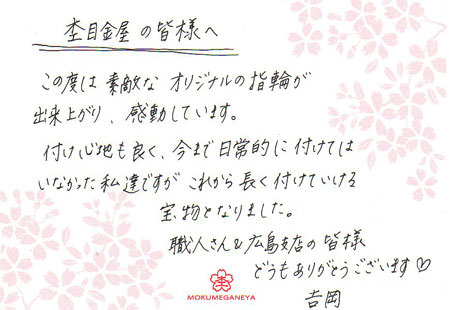 杢目金屋の皆様へ
この度は素敵なオリジナルの指輪が
出来上がり、感動しています。
付け心地も良く、今まで日常的に付けては
いなかった私達ですがこれから長く付けていける
宝物となりました。
職人さん&広島支店の皆様
どうもありがとうございます♡
吉岡
MOKUMEGANEYA